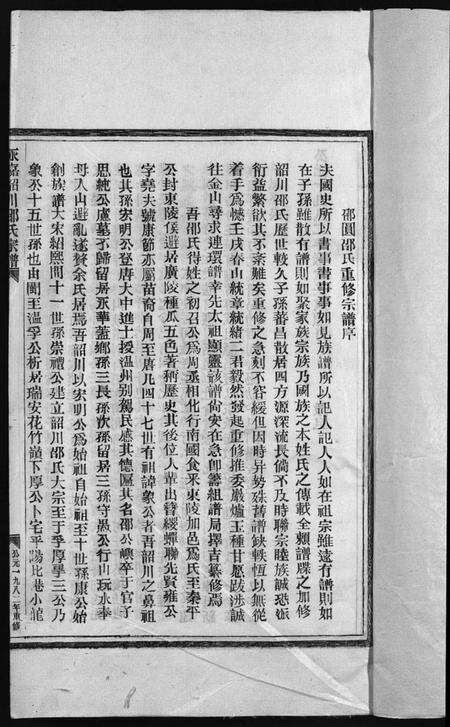 邵園邵氏重修宗譜序
夫國史所以書事書事事如見族譜所以記人記人人如在祖宗雖遠有譜則如
在子孫雖散有譜則如聚家族宗族乃國族之本姓氏之傳載全賴譜牒之加修
韶川邵氏歷世較久子孫蕃昌散居四方源深流長倘不及時聯宗睦族誠恐派
衍益繁欲其不紊難矣重修之急刻不容緩但因時异勢殊舊譜缺軼恆以無從
着手爲憾壬戌春山統章統緒二君毅然發起重修推委嚴爐玉種甘愿跋涉誠
往金山尋求連環譜幸先太祖顯靈該譜尚安在急卽籌組譜局擇吉纂修焉
吾邵氏得姓之初召公爲周丞相化行南國食釆東陵加邑爲氏至秦平
公封東陵侯避居廣陵種瓜五色著稱歷史其後位人輩出簪纓蟬聯先賢雍公
字堯夫號康節亦屬苗裔自周至唐凡四十七世有祖諱象公者吾韶川之鼻祖
也其孫宏明公登唐大中進士授温州别駕民感其德匾其名邵公嶼卒于官子
思純公廬墓不歸留居永華蓋鄉孫三長孫次孫留居三孫守愚公行山玩水奉
母入山避亂遂贅余氏居焉吾韶川以宏明公爲始祖自始祖至十世孫康公始
創族譜大宋紹熙間十一世孫崇禮公建立韶川邵氏大宗至于孚厚學三公乃
象公十五世孫也由閩至温孚公析居瑞安花竹嶺下厚公卜宅平陽北巷小龍
永嘉韶川邵氏宗譜
公元一九八二年重修